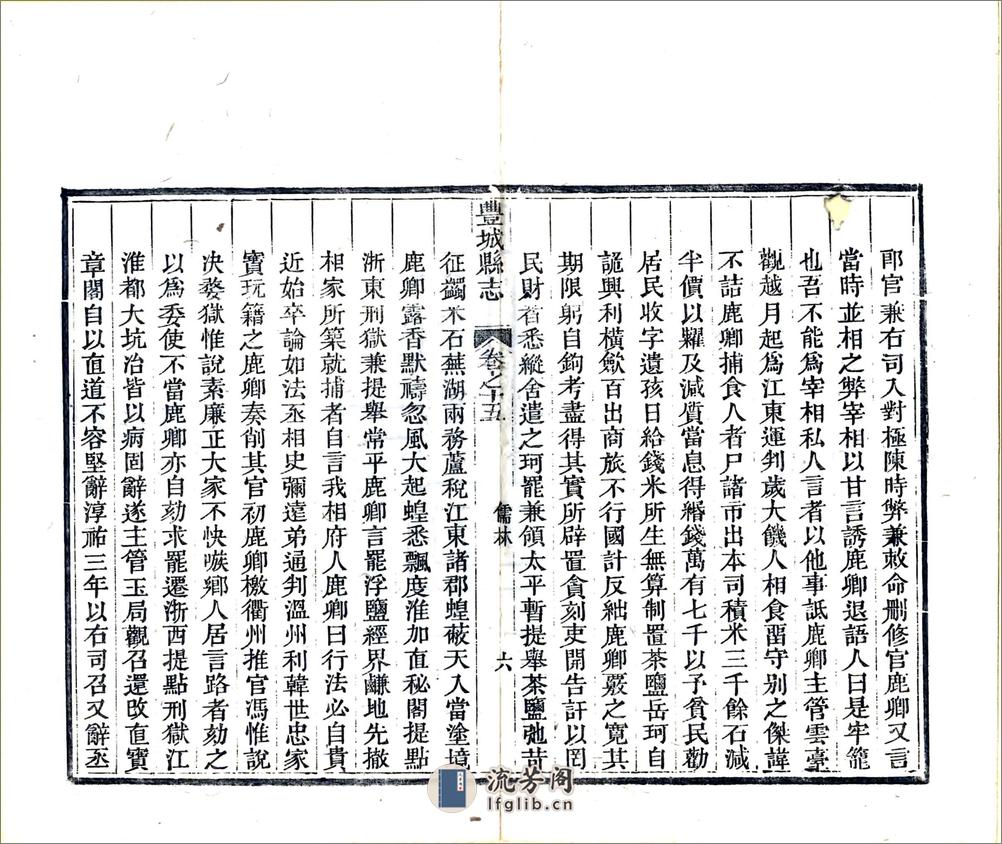 郎官兼右司入對極陳時弊兼敕命刪修官鹿卿又言
當時並相之弊宰相以甘言誘鹿卿退語人曰是牢籠
也吾不能爲宰相私人言者以他事詆鹿卿主管雲臺
觀越月起爲江東運判歲大饑人相食畱守别之傑諱
不詰鹿卿捕食人者尸諸市出本司積米三千餘石減
半價以糶及減質當息得緡錢萬有七千以予貧民勸
居民收字遺孩日給錢米所生無算制置茶鹽岳珂自
詭興利橫歛百出商旅不行國計反絀鹿卿覈之寬其
期限躬自鉤考盡得其實所辟置貪刻吏開告訐以罔
民財者悉縱舍遣之珂罷兼領太平暫提舉茶鹽弛苛
豐城縣志
卷之十五
儒林
六
征蠲米石蕪湖兩務蘆稅江東諸郡蝗蔽天入當塗境
鹿卿露香默禱忽風大起蝗悉飄度淮加直秘閣提點
浙東刑獄兼提舉常平鹿卿言罷浮鹽經界鹻地先撤
相家所築就捕者自言我相府人鹿卿曰行法必自貴
近始卒論如法丞相史彌遠弟通判溫州利韓世忠家
寶玩籍之鹿卿奏削其官初鹿卿檄衢州推官馮惟說
决婺獄惟說素廉正大家不快嗾鄉人居言路者劾之
以爲委使不當鹿卿亦自劾求罷遷浙西提點刑獄江
淮都大坑治皆以病固辭遂主管玉局觀召還改直寶
章閣自以直道不容堅辭淳祐三年以右司召又辭丞
流芳阁
lfglib.cn